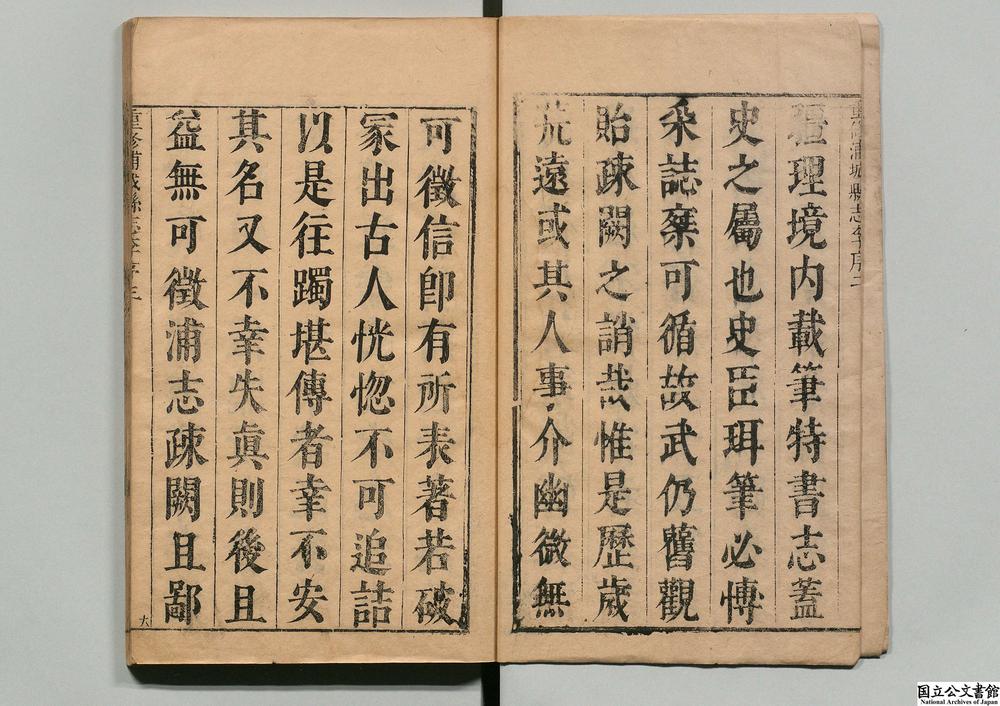 疆理境内載筆特書志蓋
史之屬也史臣珥筆必愽
采誌棄可循故武仍舊觀
貽疎闕之誚哉惟是歷歲
荒遠或其人事介幽微無
可徵信卽有所表著若破
冢出古人恍惚不可追詰
以是往躅堪傳者幸不安
其名又不幸失眞則後且
益無可徵浦志疎闕且鄙
重修浦城縣志序三
大
国立公文書館
National Archives of Japan